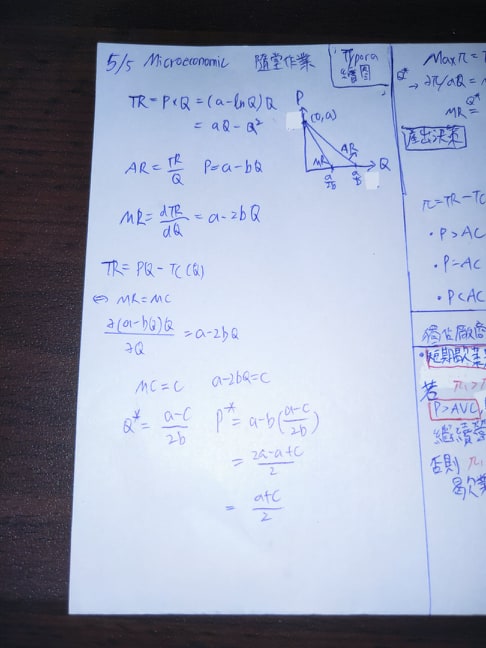 5/5 Microeconomic 隨堂作業
Typora 繪圖
TR = P×Q = (a-bQ)Q
= aQ - Q²
P
(0,a)
MR
AR
a/2b
a/b
Q
AR = TR/Q P = a-bQ
MR = dTR/dQ = a-2bQ
TR = PQ - TC(Q)
⇔ MR = MC
∂(a-bQ)Q/∂Q = a-2bQ
MC = C a-2bQ = C
Q* = a-c/2b P* = a-b(a-c/2b)
= 2a-a+c/2
= a+c/2
Max π = T
Q*
→ ∂π/∂Q =
MR =
產出決策
π = TR - TC
·P > AC
·P = AC
·P < AC
獨佔廠商
·短期歇業
若
P > AVC,
繼續營
否則
歇業